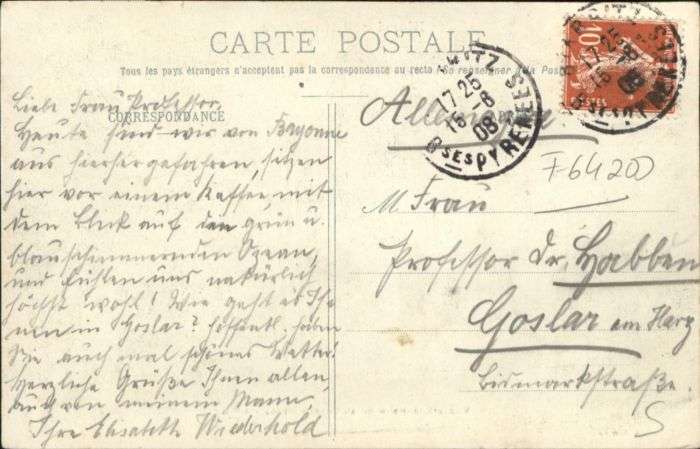 CARTE POSTALE
Tous les pays étrangers n'acceptent pas la correspondance au recto
CORRESPONDANCE
Liebe Frau Professor,
Heute sind wir von Bayonne
aus hierher gefahren, sitzen
hier vor einem Kaffee mit
dem Blick auf den grün u.
blauschimmernden Ozean,
und fühlen uns natürlich
höchst wohl! Wie geht es Ih=
nen in Goslar? Hoffentl. haben
Sie auch mal schönes Wetter!
Herzliche Grüße Ihnen allen,
auch von meinem Mann
Ihre Elisabeth Wiederhold
BIARRITZ
17 25
15 -8
08
BSES PYRENEES
10
Allemagne
F64200
M Frau
Professor Dr. Habben
Goslar am Harz
Bismarkstraße.
5